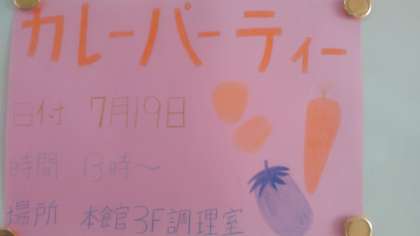 カレーパーティー
日付 7月19日
時間 13時～
場所 本館3F調理室